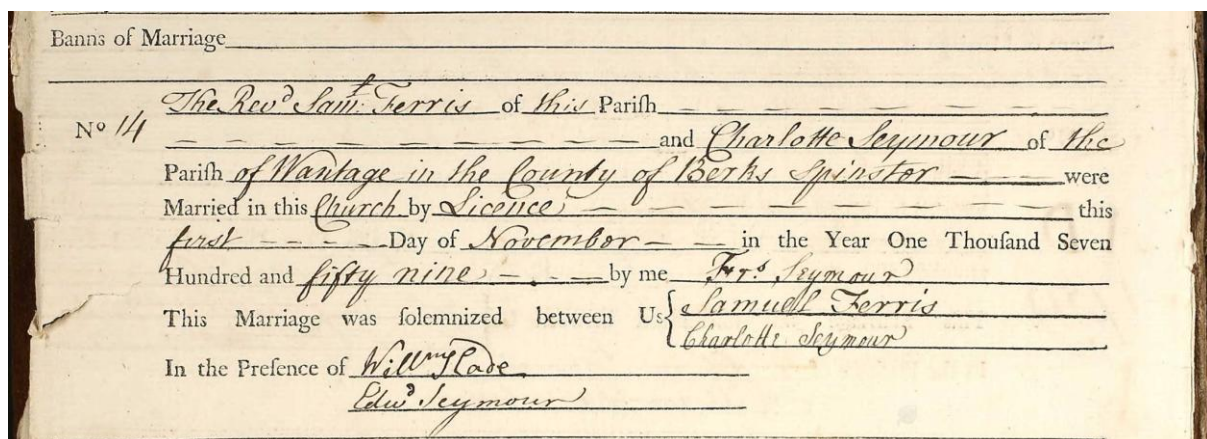 Banns of Marriage
The Revd Saml. Ferris of this Pariſh
No 14 and Charlotte Seymour of the
Pariſh of Wantage in the County of Berks Spinster were
Married in this Church by Licence this
first Day of November in the Year One Thouſand Seven
Hundred and fifty nine by me Frs. Seymour
This Marriage was ſolemnized between Us Samuell Ferris
Charlotte Seymour
In the Preſence of Willm Slade
Edwd Seymour